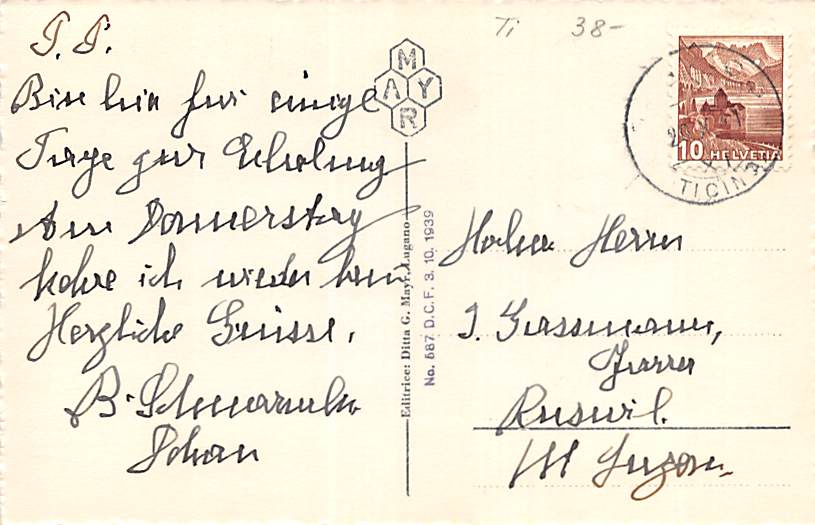 T. T.
Bin hier für einige
Tage zur Erholung
Am Donnerstag
kehre ich wieder heim
Herzliche Grüsse.
B.
Dekan
MAYR
Editrice: Ditta G. Mayr, Lugano
No. 587 D.C.F. 3. 10. 1939
Ti 38-
10 HELVETIA
TICINO
Hochw. Herrn
J. Gassmann,
Pfarrer
Ruswil.
Luzern